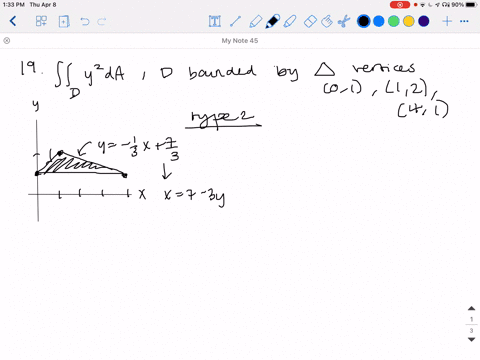 1:33 PM Thu Apr 8
90%
My Note 45
19. ∬_D y² dA , D bounded by △ vertices
(0,1) , (1,2) ,
(4,1)
y
type 2
y = -1/3 x + 7/3
x x = 7 - 3y
1
3